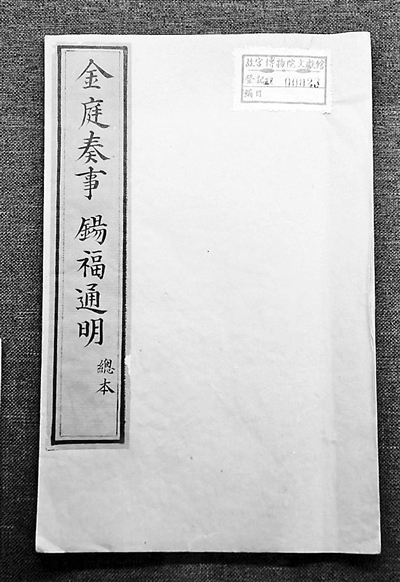 金庭奏事 錫福通明
總本
故宮博物院文獻館
登記
編目